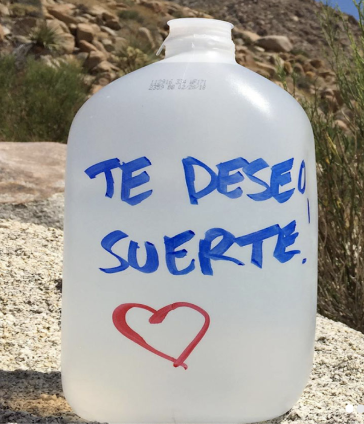 TE DESEO
SUERTE!